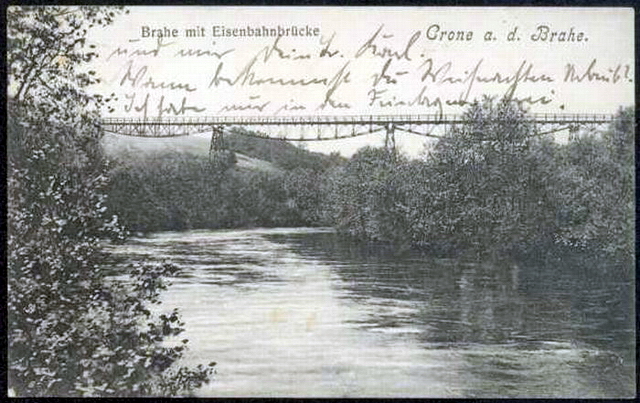 Brahe mit Eisenbahnbrücke
Crone a. d. Brahe.
und mir Dein lr. Karl.
Wann bekommst du Weihnachten Urlaub?
Ich habe nur in den Feiertagen frei.